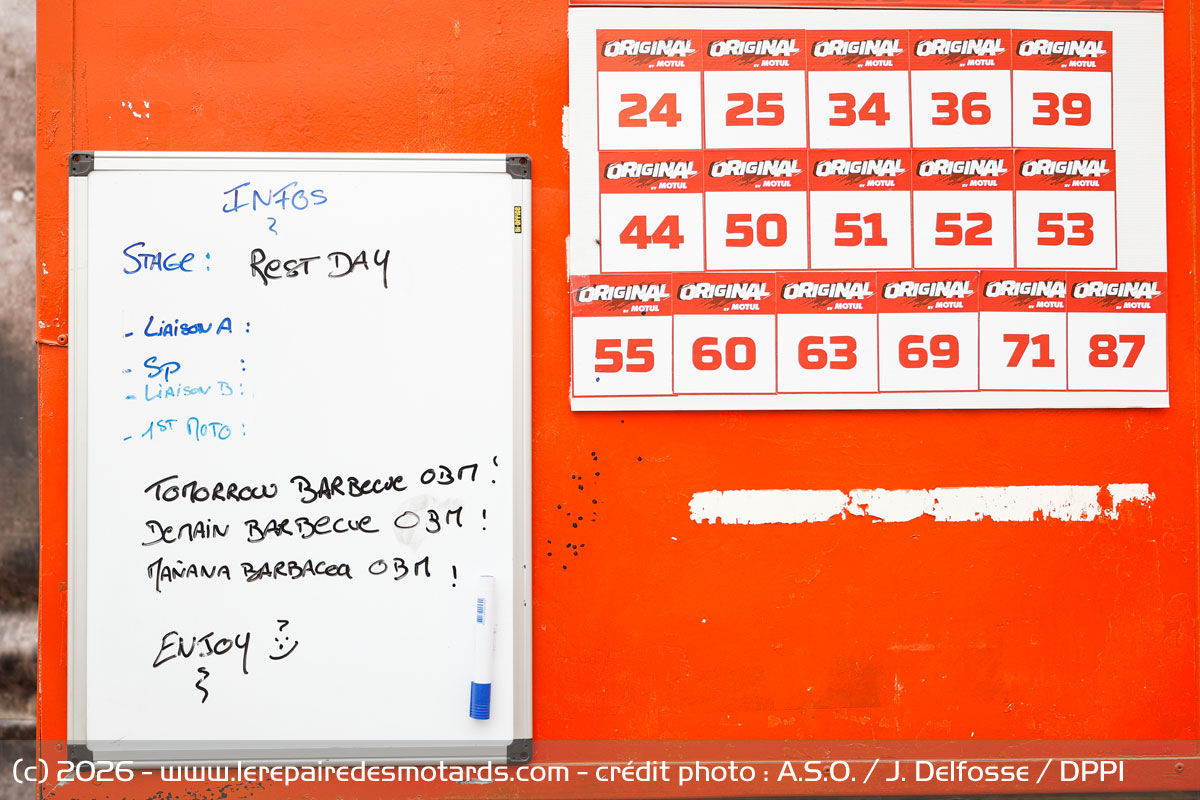 INFOS
STAGE : REST DAY
- LIAISON A :
- SP :
- LIAISON B :
- 1ST MOTO :
TOMORROW BARBECUE OBM !
DEMAIN BARBECUE OBM !
MAÑANA BARBACOA OBM !
ENJOY
ORIGINAL ORIGINAL ORIGINAL ORIGINAL ORIGINAL
BY MOTUL BY MOTUL BY MOTUL BY MOTUL BY MOTUL
24 25 34 36 39
ORIGINAL ORIGINAL ORIGINAL ORIGINAL ORIGINAL
BY MOTUL BY MOTUL BY MOTUL BY MOTUL BY MOTUL
44 50 51 52 53
ORIGINAL ORIGINAL ORIGINAL ORIGINAL ORIGINAL ORIGINAL
BY MOTUL BY MOTUL BY MOTUL BY MOTUL BY MOTUL BY MOTUL
55 60 63 69 71 87
(c) 2026 - www.lerepairedesmotards.com - crédit photo : A.S.O. / J. Delfosse / DPPI